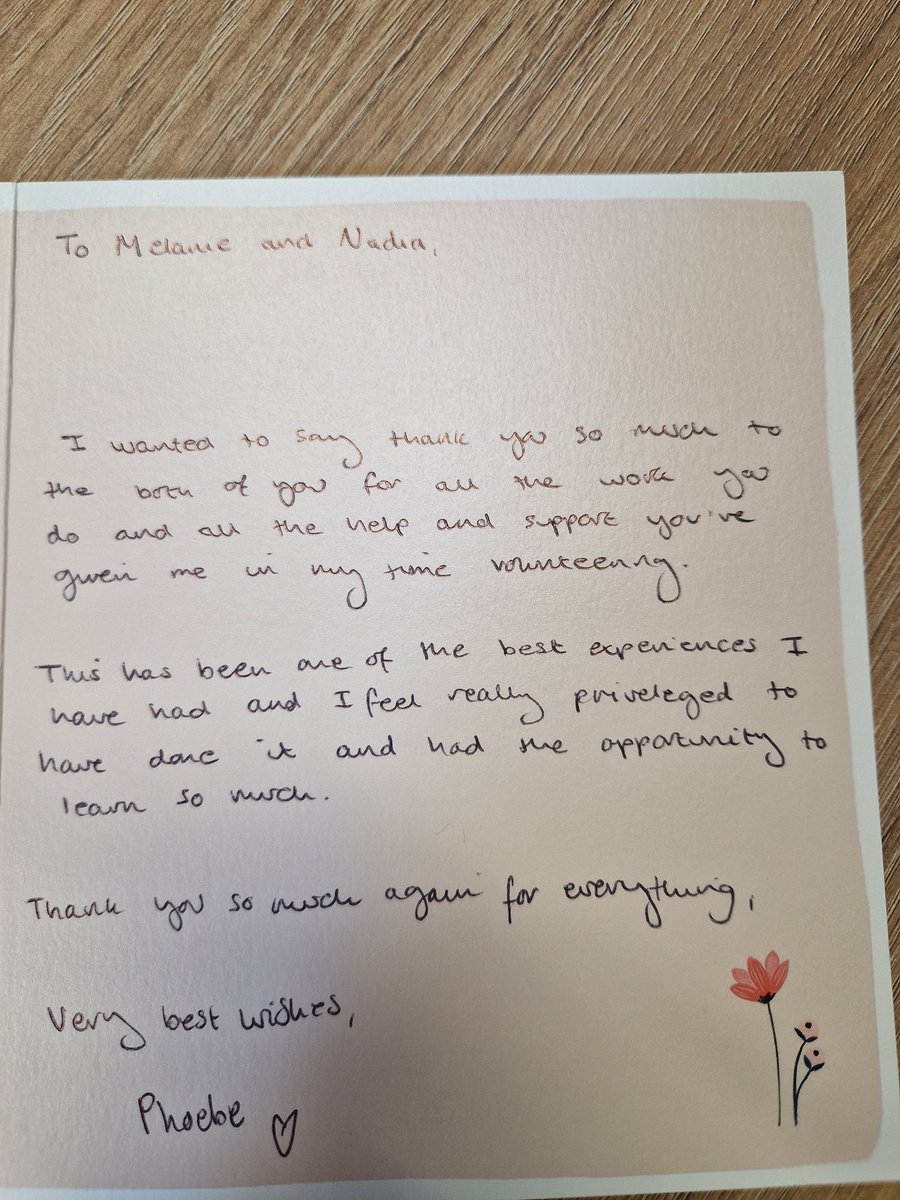 To Melanie and Nadia,
I wanted to say thank you so much to
the both of you for all the work you
do and all the help and support you've
given me in my time volunteering.
This has been one of the best experiences I
have had and I feel really priveleged to
have done it and had the opportunity to
learn so much.
Thank you so much again for everything,
Very best wishes,
Phoebe ♡